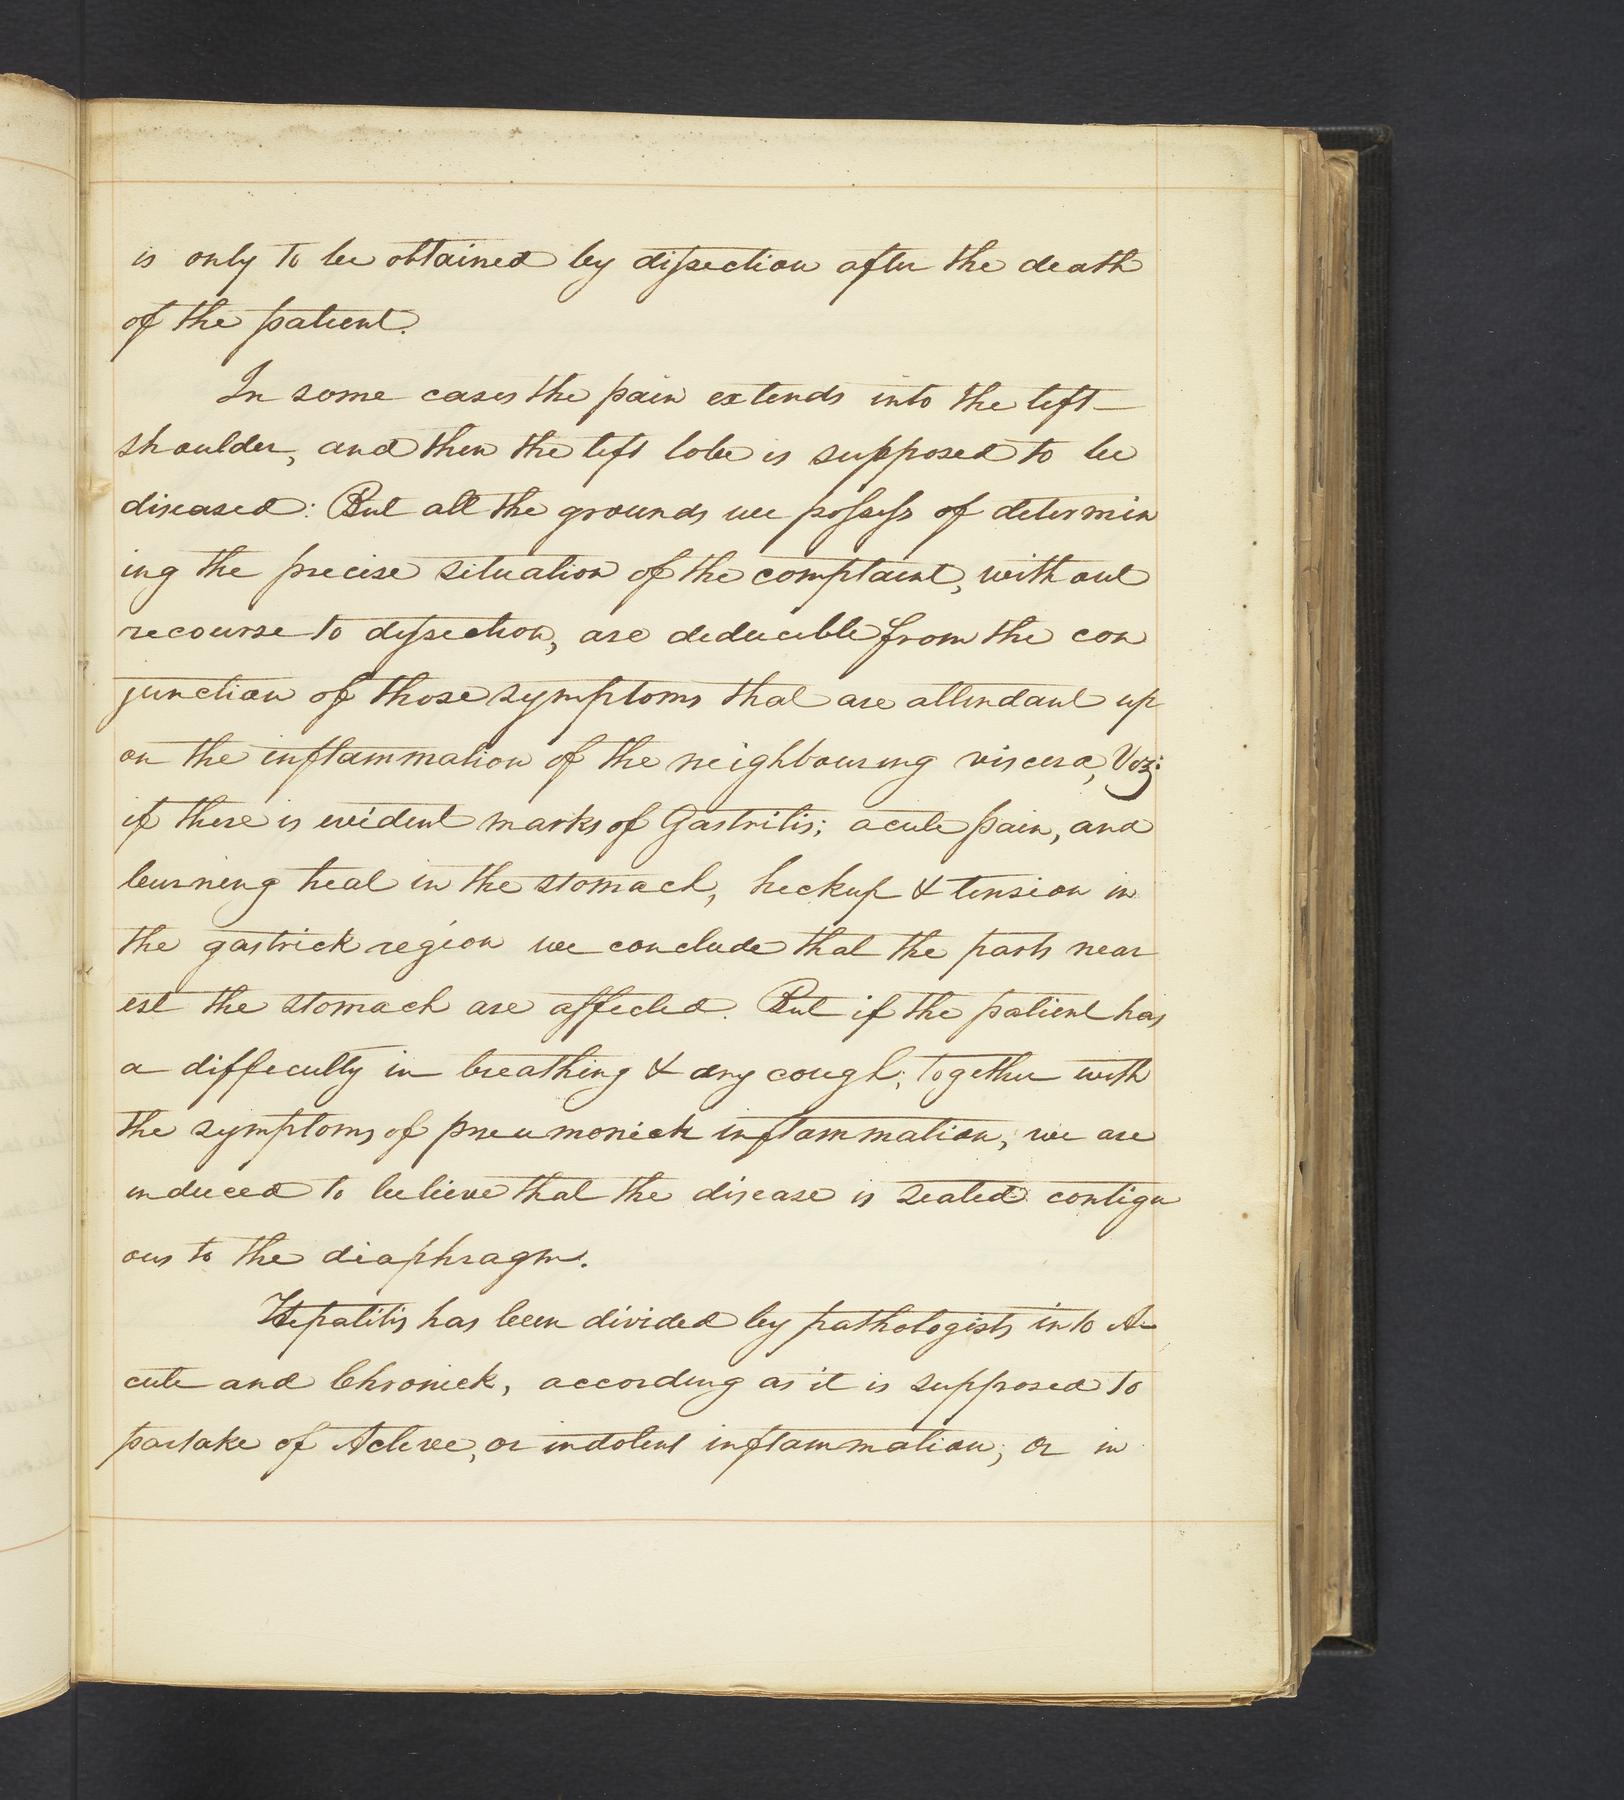 is only to be obtained by dissection after the death
of the patient.
In some cases the pain extends into the left
shoulder, and then the left lobe is supposed to be
diseased: But all the grounds we possess of determin
ing the precise situation of the complaint, without
recourse to dissection, are deducible from the con
junction of those symptoms that are attendant up
on the inflammation of the neighbouring viscera, Viz:
if there is evident marks of Gastritis; acute pain, and
burning heat in the stomach, heckup & tension in
the gastrick region we conclude that the parts near
est the stomach are affected. But if the patient has
a difficulty in breathing & dry cough; together with
the symptoms of pneumonick inflammation, we are
induced to believe that the disease is seated contigu
ous to the diaphragm.
Hepatitis has been divided by pathologists into A-
cute and Chronick, according as it is supposed to
partake of Active, or indolent inflammation, or in